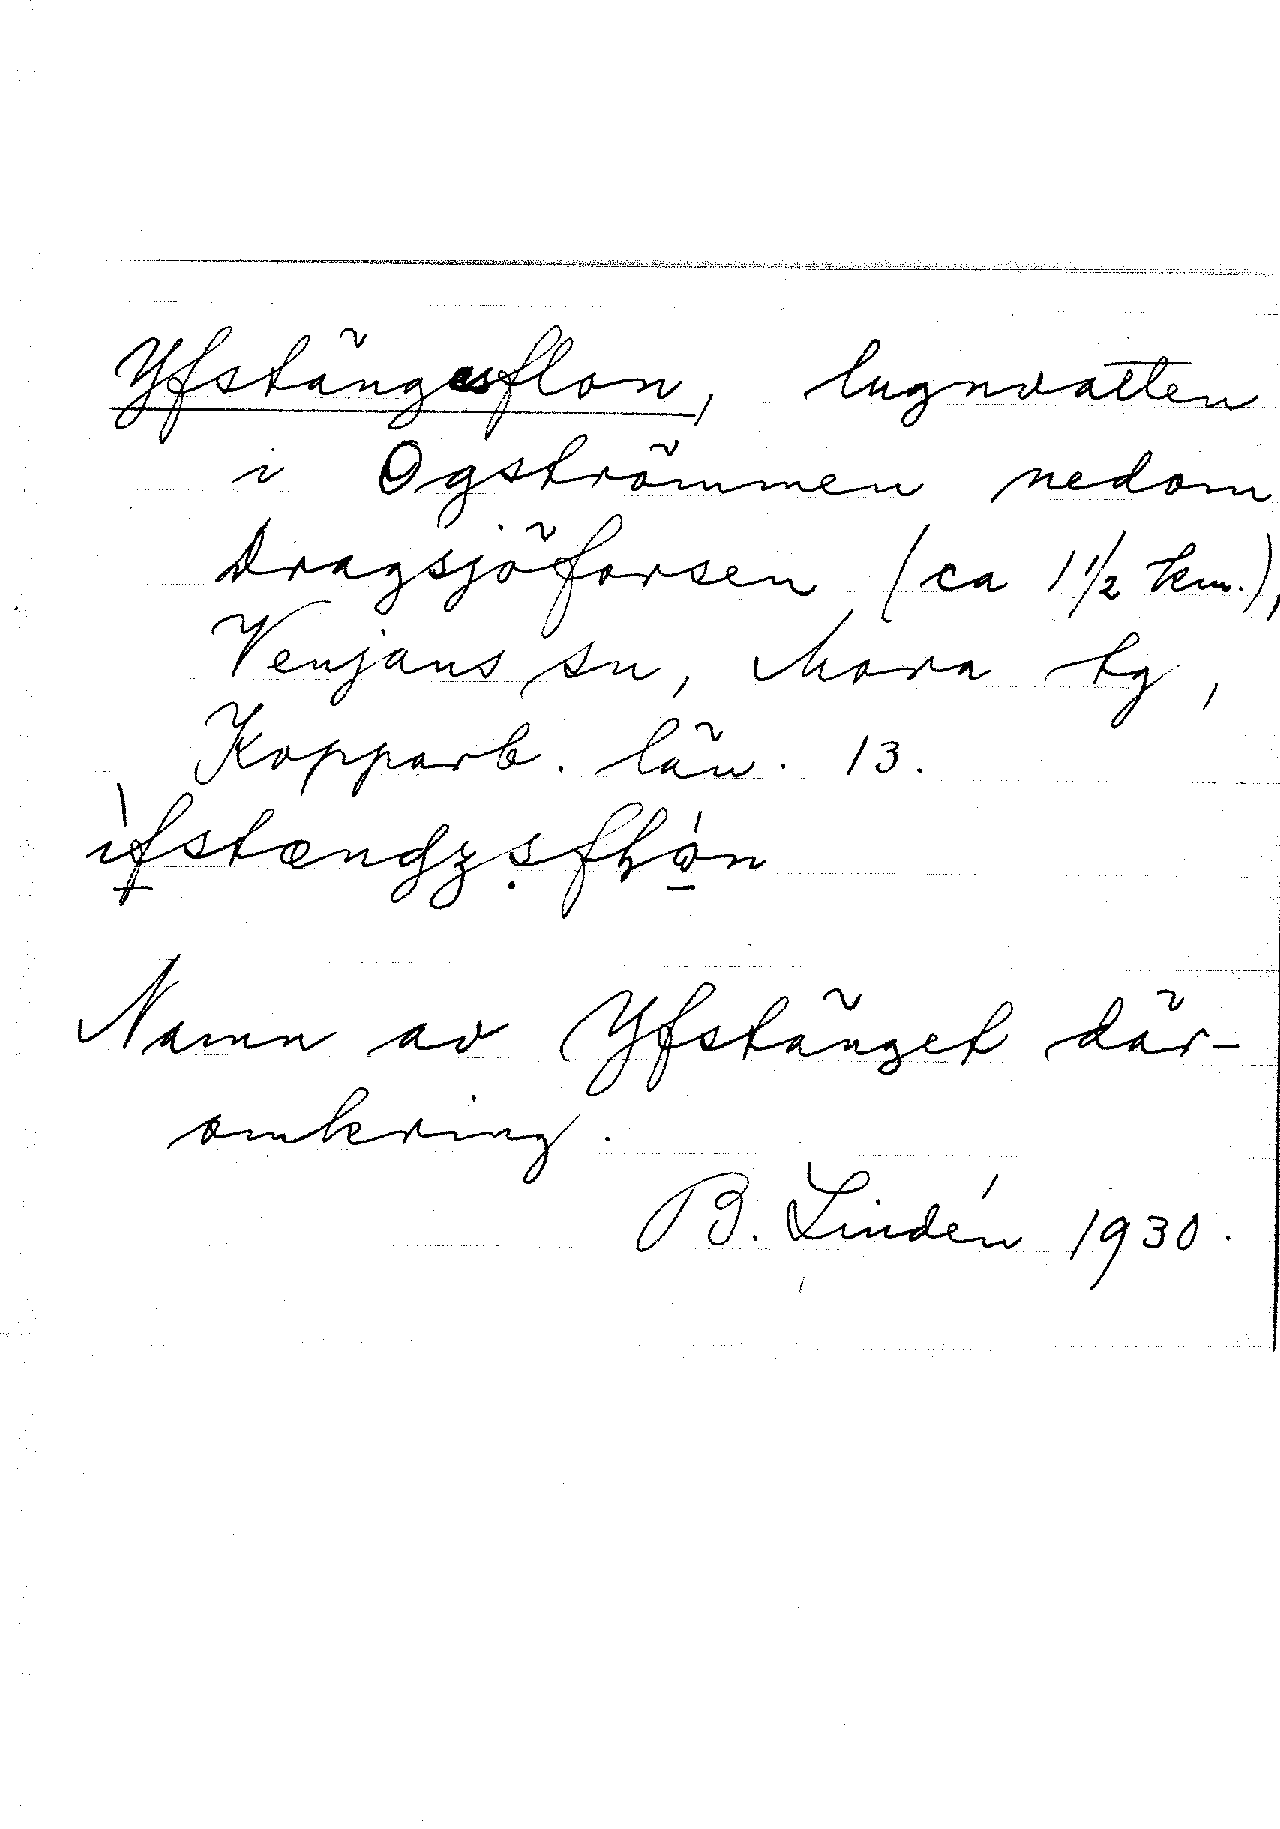 Yfstängesflon, lugnvatten
i Ogströmmen nedom
Dragsjöforsen (ca 1 1/2 km.),
Venjans sn, Mora tg,
Kopparb. län. 13.
Namn av Yfstänget där-
omkring.
B. Lindén 1930.